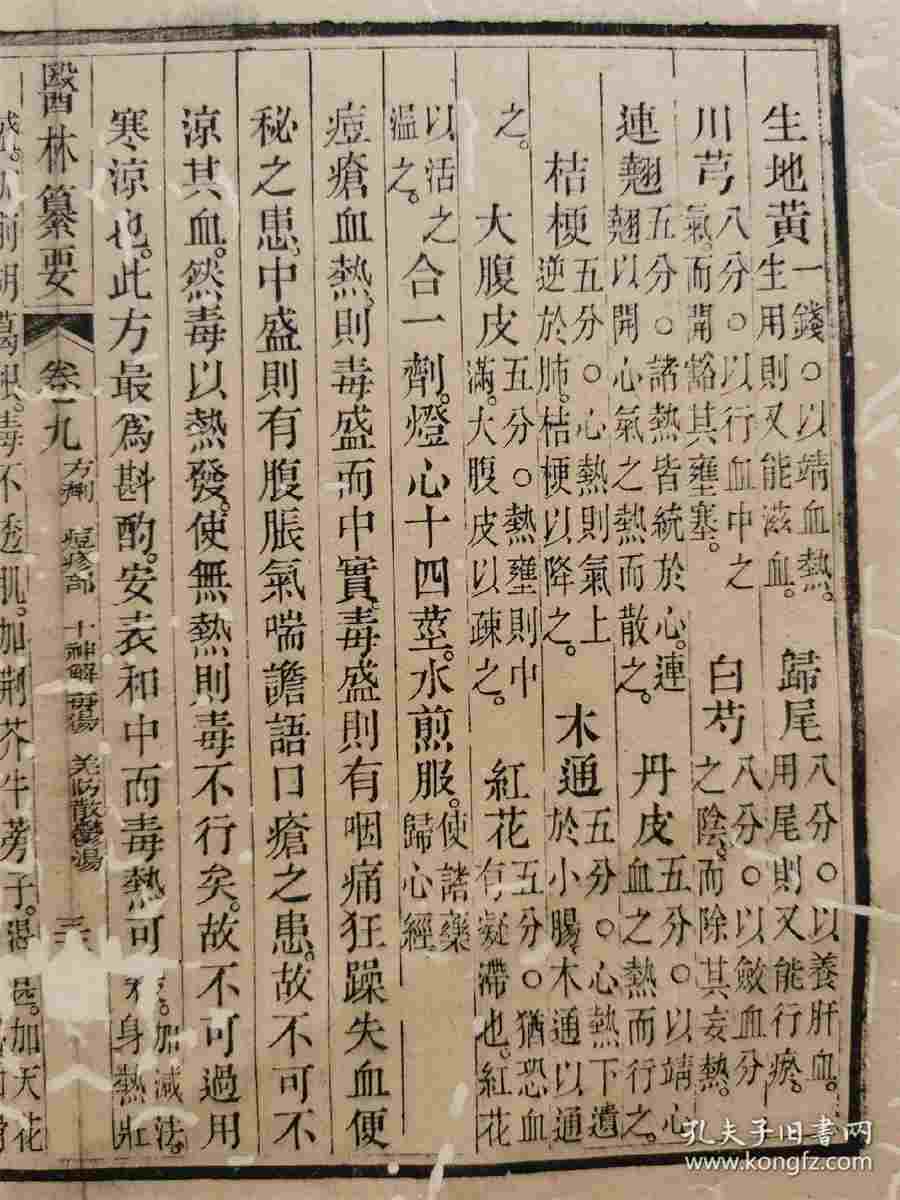 生地黃一錢○以靖血熱。生用則又能滋血。歸尾八分○以養肝血。用尾則又能行瘀。
川芎八分○以行血中之氣。而開豁其壅塞。白芍八分○以斂血分之陰。而除其妄熱。
連翹五分○諸熱皆統於心。連翹以開心氣之熱而散之。丹皮五分○以靖心血之熱而行之。
桔梗五分○心熱則氣上逆於肺。桔梗以降之。木通五分○心熱下遺於小腸。木通以通
之。大腹皮五分○熱壅則中滿。大腹皮以疎之。紅花五分○猶恐血有凝滯也。紅花
以活之溫之。合一劑。燈心十四莖。水煎服。使諸藥歸心經
痘瘡血熱則毒盛而中實。毒盛則有咽痛狂躁失血便
秘之患。中盛則有腹脹氣喘譫語口瘡之患。故不可不
涼其血。然毒以熱發。使無熱則毒不行矣。故不可過用
寒涼也。此方最為斟酌。安表和中而毒熱可 加減法。身熱壯
醫林纂要 卷一九 方劑 痘疹部 十神解毒湯 羌防散鬱湯
前胡葛根。毒不透肌。加荊芥牛蒡子。渴甚。加天花
孔夫子旧书网
www.kongfz.com